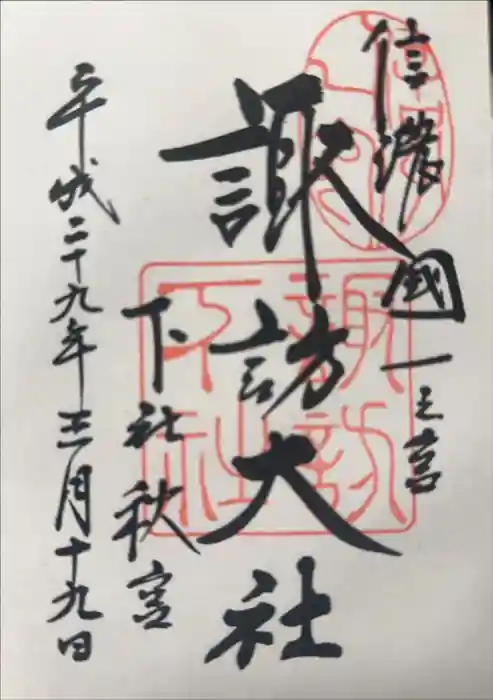 信濃國一之宮
諏訪大社
下社秋宮
平成二十九年三月十九日
諏訪
下社